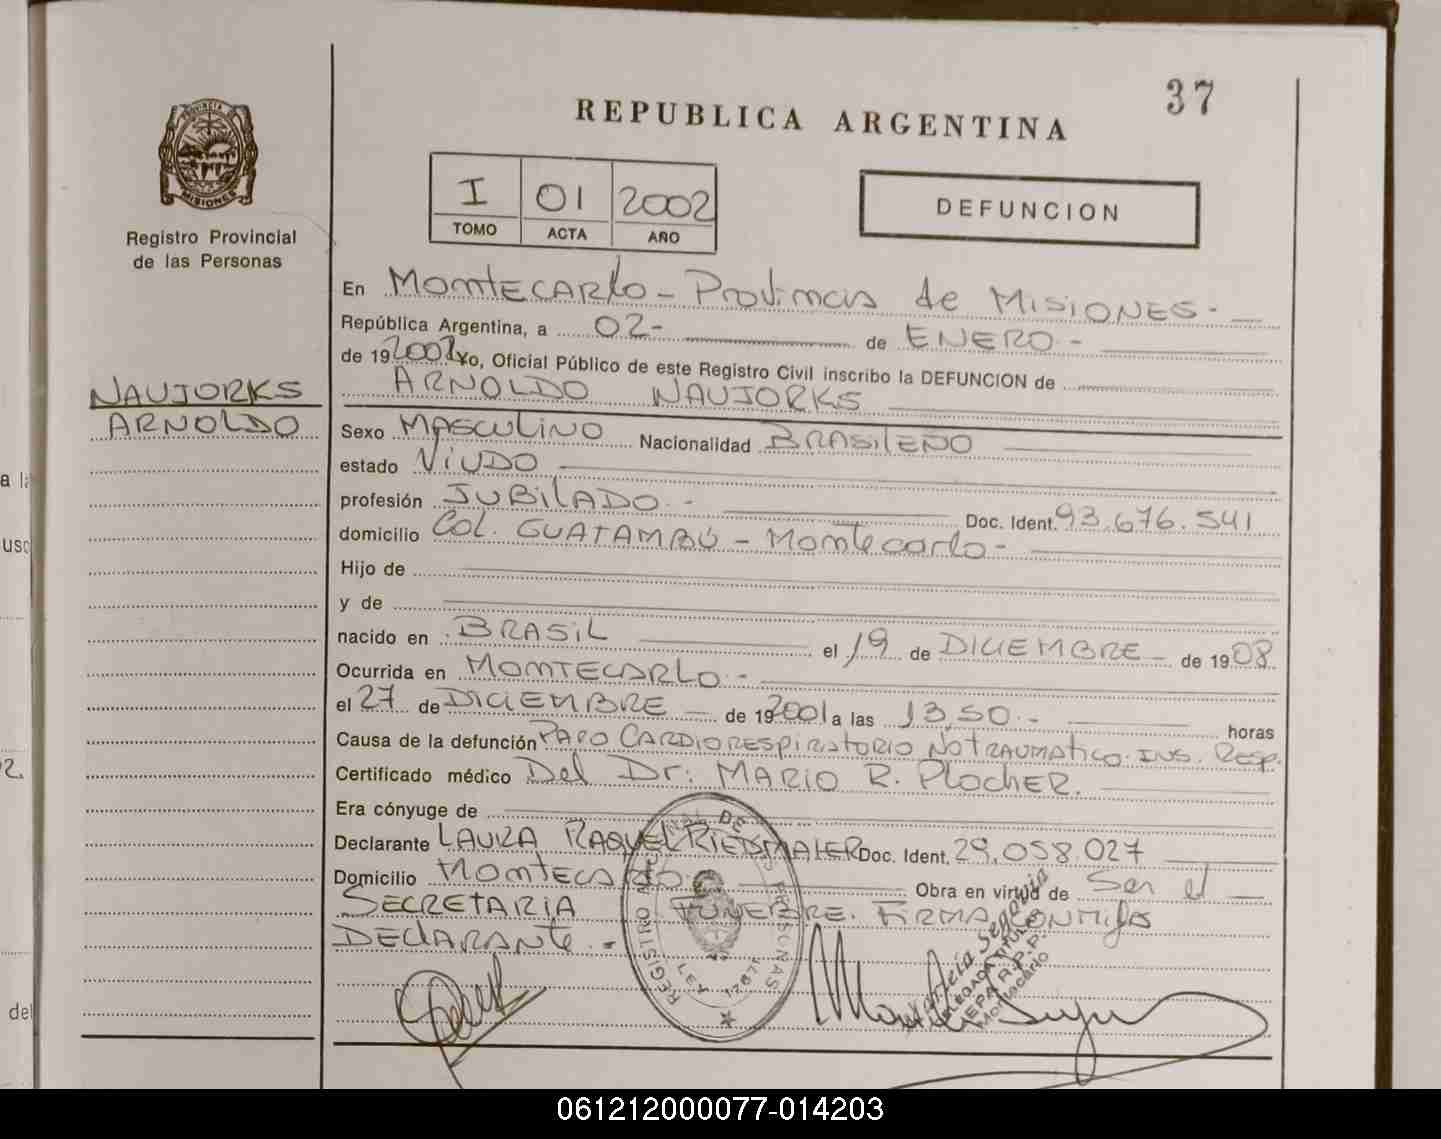 37
REPUBLICA ARGENTINA
PROVINCIA
MISIONES
Registro Provincial
de las Personas
I 01 2002
TOMO ACTA AÑO
DEFUNCION
En Montecarlo - Provincia de Misiones -
República Argentina, a 02- de ENERO -
de 192002 Yo, Oficial Público de este Registro Civil inscribo la DEFUNCION de
ARNOLDO NAUJORKS
NAUJORKS
ARNOLDO
Sexo MASCULINO Nacionalidad BRASILEÑO
estado VIUDO
profesión JUBILADO - Doc. Ident. 93.676.541
domicilio Col. GUATAMBÚ - Montecarlo -
Hijo de
y de
nacido en BRASIL el 19 de DICIEMBRE - de 1908
Ocurrida en MONTECARLO -
el 27 de DICIEMBRE - de 192001 a las 13,50 - horas
Causa de la defunción PARO CARDIORESPIRATORIO NO TRAUMATICO. INS. RESP.
Certificado médico Del Dr: MARIO R. PLOCHER.
Era cónyuge de
Declarante LAURA RAQUEL RIEDMAIER Doc. Ident. 29.058.027
Domicilio MONTECARLO Obra en virtud de Ser el
SECRETARIA FUNEBRE. FIRMA CONMIGO
DECLARANTE. -
REGISTRO DE LAS PERSONAS
DELEGADA TITULAR
Montecarlo
a la
usc
02.
del
061212000077-014203